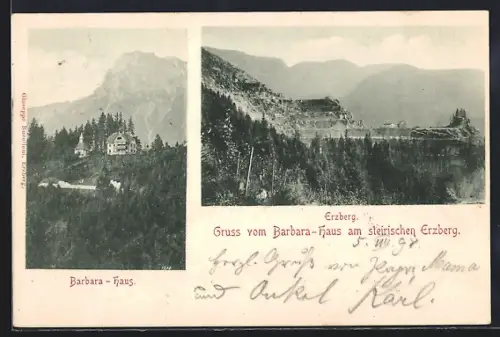 Erzberg.
Gruss vom Barbara-Haus am steirischen Erzberg.
5. VIII. 98.
Herzl. Grüße von Papa, Mama
und Onkel Karl.
Barbara-Haus.